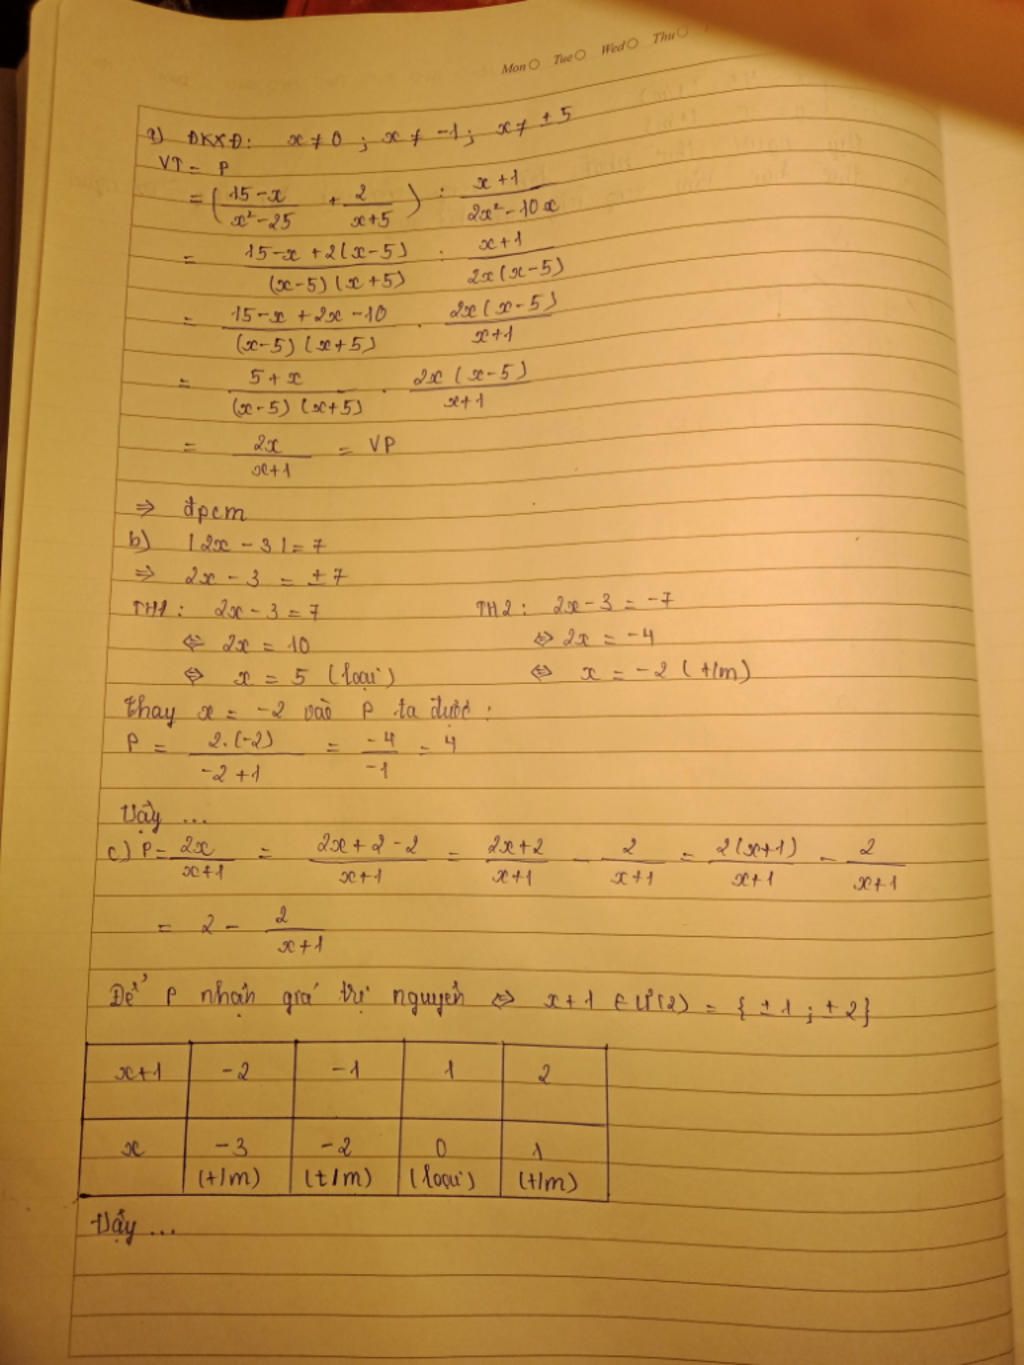 Mon Tue Wed Thu
a) ĐKXĐ: x ≠ 0 ; x ≠ -1 ; x ≠ ± 5
VT = P
= ( (15-x)/(x²-25) + 2/(x+5) ) : (x+1)/(2x²-10x)
= (15-x+2(x-5))/((x-5)(x+5)) : (x+1)/(2x(x-5))
= (15-x+2x-10)/((x-5)(x+5)) . (2x(x-5))/(x+1)
= (5+x)/((x-5)(x+5)) . (2x(x-5))/(x+1)
= 2x/(x+1) = VP
⇒ đpcm
b) |2x - 3| = 7
⇒ 2x - 3 = ± 7
TH1: 2x - 3 = 7 TH2: 2x - 3 = -7
⇔ 2x = 10 ⇔ 2x = -4
⇔ x = 5 (loại) ⇔ x = -2 (t/m)
Thay x = -2 vào P ta được:
P = (2.(-2))/(-2+1) = -4/-1 = 4
Vậy ...
c) P = 2x/(x+1) = (2x+2-2)/(x+1) = (2x+2)/(x+1) - 2/(x+1) = (2(x+1))/(x+1) - 2/(x+1)
= 2 - 2/(x+1)
Để P nhận giá trị nguyên ⇔ x+1 ∈ Ư(2) = {±1 ; ±2}
x+1 -2 -1 1 2
x -3 -2 0 1
(t/m) (t/m) (loại) (t/m)
Vậy ...